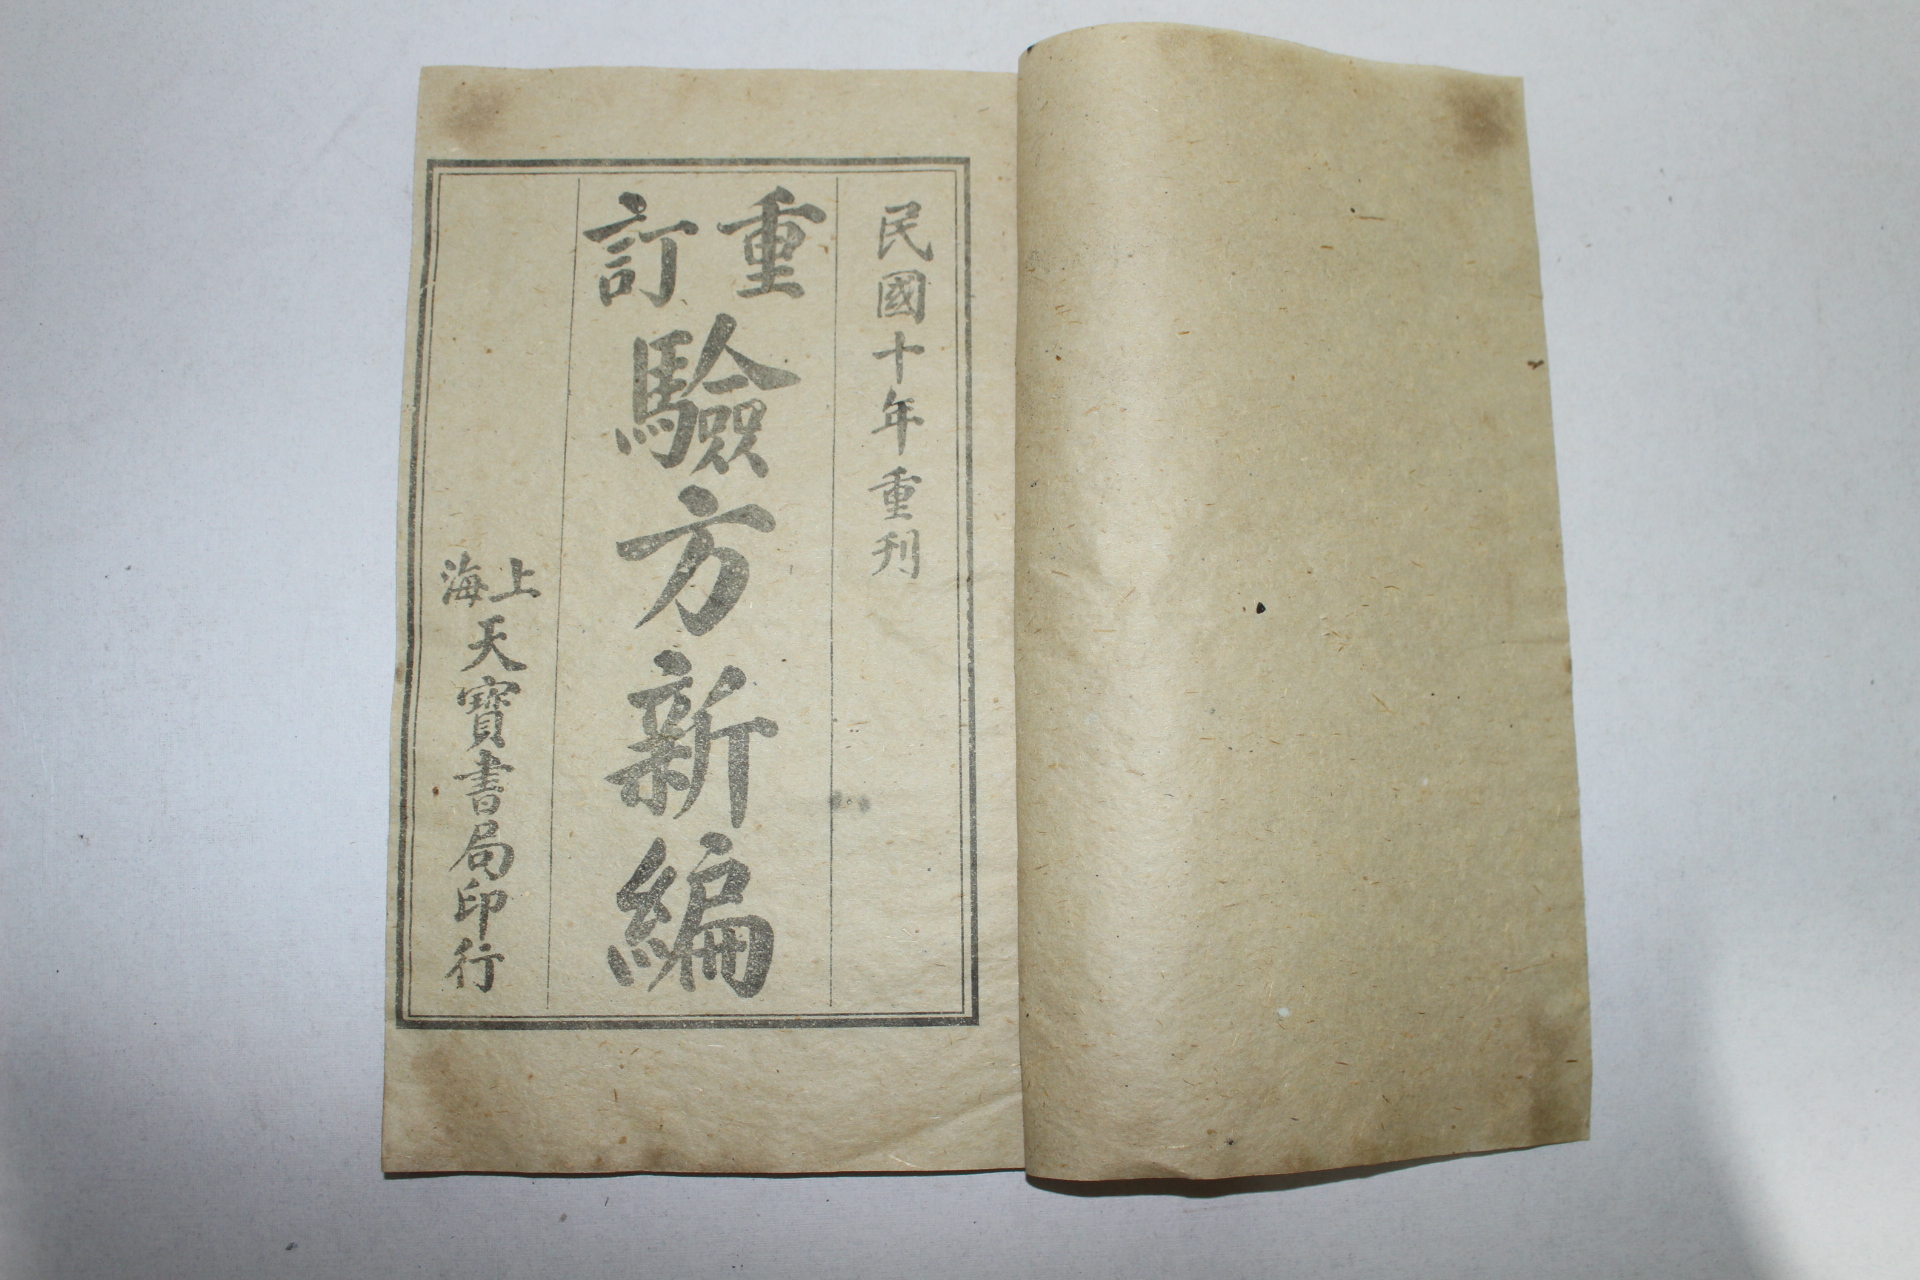 民國十年重刊
重訂驗方新編
上海天寶書局印行